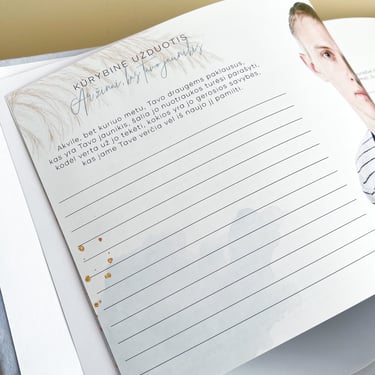 KŪRYBINĖ UŽDUOTIS
Ar žinai, kas tavo jaunikis
Akvile, bet kuriuo metu, Tavo draugėms paklausus,
kas yra Tavo jaunikis, šalia jo nuotraukos turėsi parašyti,
kodėl verta už jo tekėti, kokios yra jo gerosios savybės,
kas jame Tave verčia vėl iš naujo jį pamilti.